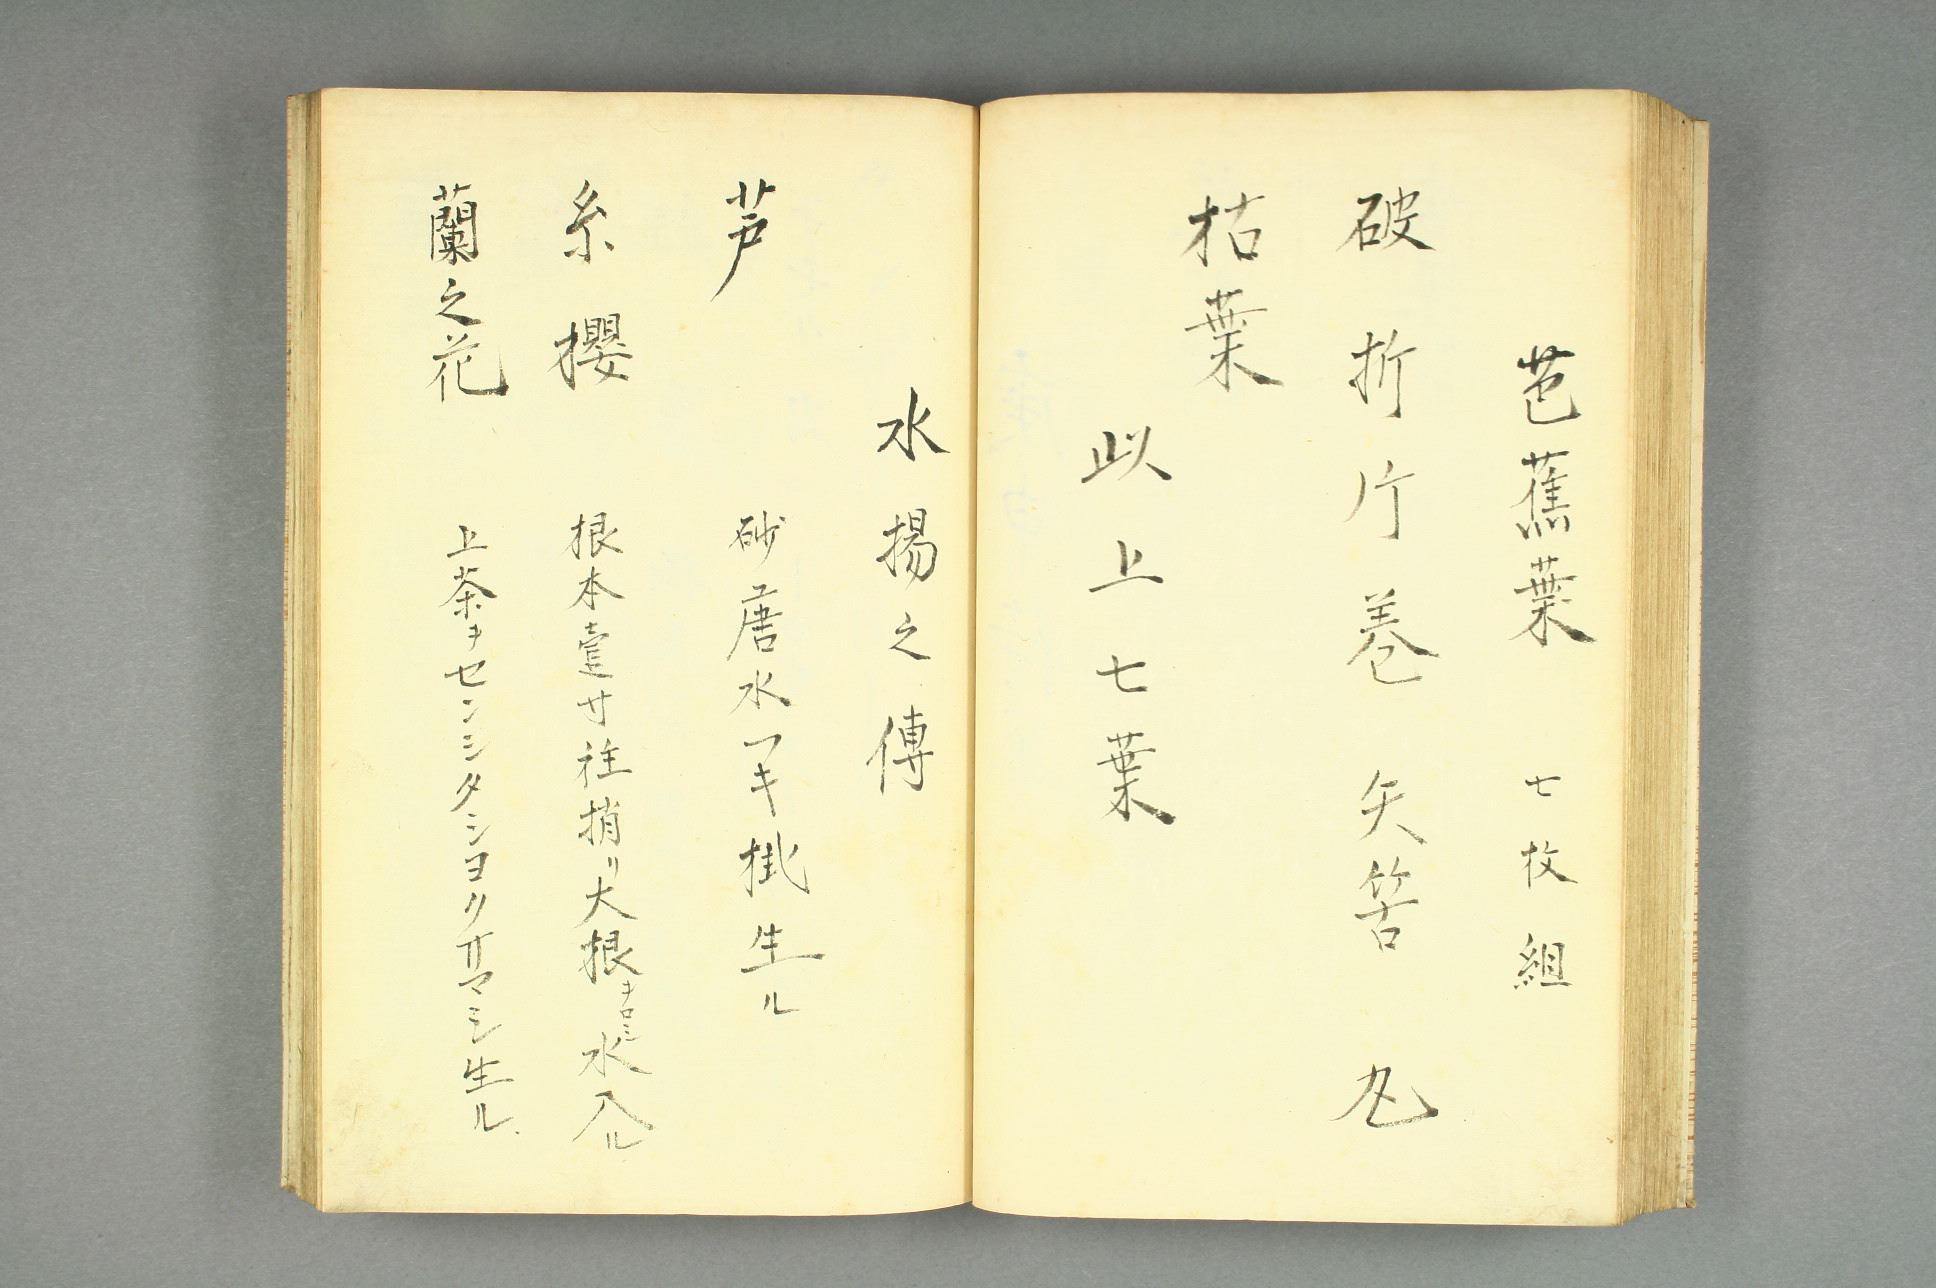 芭蕉葉 七枚組
破折片巻矢筈丸
枯葉
以上七葉
水揚之傳
芦 砂唐水ツキ掛生ル
糸櫻 根本壹寸 梢リ大根オロシ水入ル
蘭之花 上茶ヲセンシタシヨクサマシ生ル